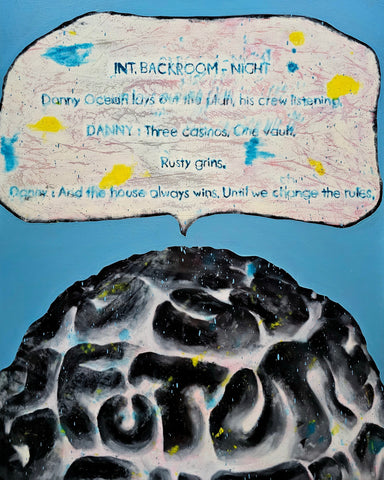 INT. BACKROOM - NIGHT
Danny Ocean lays out the plan, his crew listening.
DANNY : Three casinos. One vault.
Rusty grins.
Danny : And the house always wins. Until we change the rules.